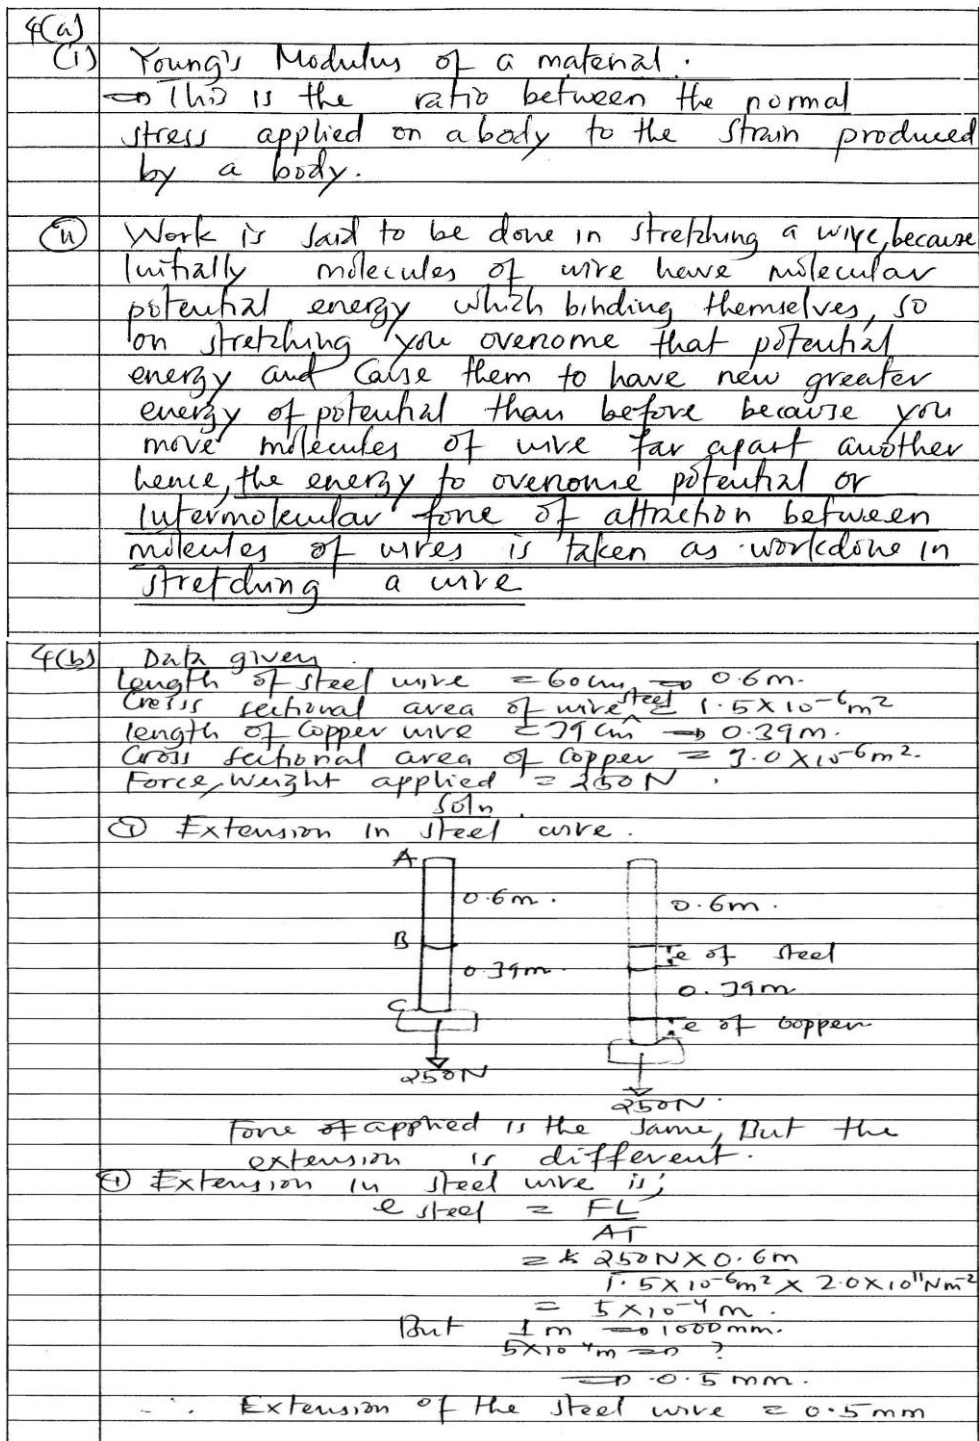 4(a)
(i) Young's Modulus of a material.
⇒ This is the ratio between the normal
stress applied on a body to the strain produced
by a body.
(ii) Work is said to be done in stretching a wire, because
Initially molecules of wire have molecular
potential energy which binding themselves, so
on stretching you overcome that potential
energy and cause them to have new greater
energy of potential than before because you
move molecules of wire far apart another
hence, the energy to overcome potential or
Intermolecular force of attraction between
molecules of wires is taken as workdone in
stretching a wire
4(b) Data given.
Length of steel wire = 60cm ⇒ 0.6m.
Cross sectional area of wire steel = 1.5×10⁻⁶m²
length of copper wire = 39cm ⇒ 0.39m.
Cross sectional area of copper = 3.0×10⁻⁶m².
Force, weight applied = 250N.
Soln.
① Extension in steel wire.
A
0.6m.
0.6m.
B
e of steel
0.39m.
0.39m
C
e of copper
250N
250N.
Force of applied is the same, But the
extension is different.
① Extension in steel wire is;
e steel = FL
AT
= 250N×0.6m
1.5×10⁻⁶m² × 2.0×10¹¹Nm⁻²
= 5×10⁻⁴m.
But 1m ⇒ 1000mm.
5×10⁻⁴m ⇒ ?
⇒ 0.5mm.
∴ Extension of the steel wire = 0.5mm